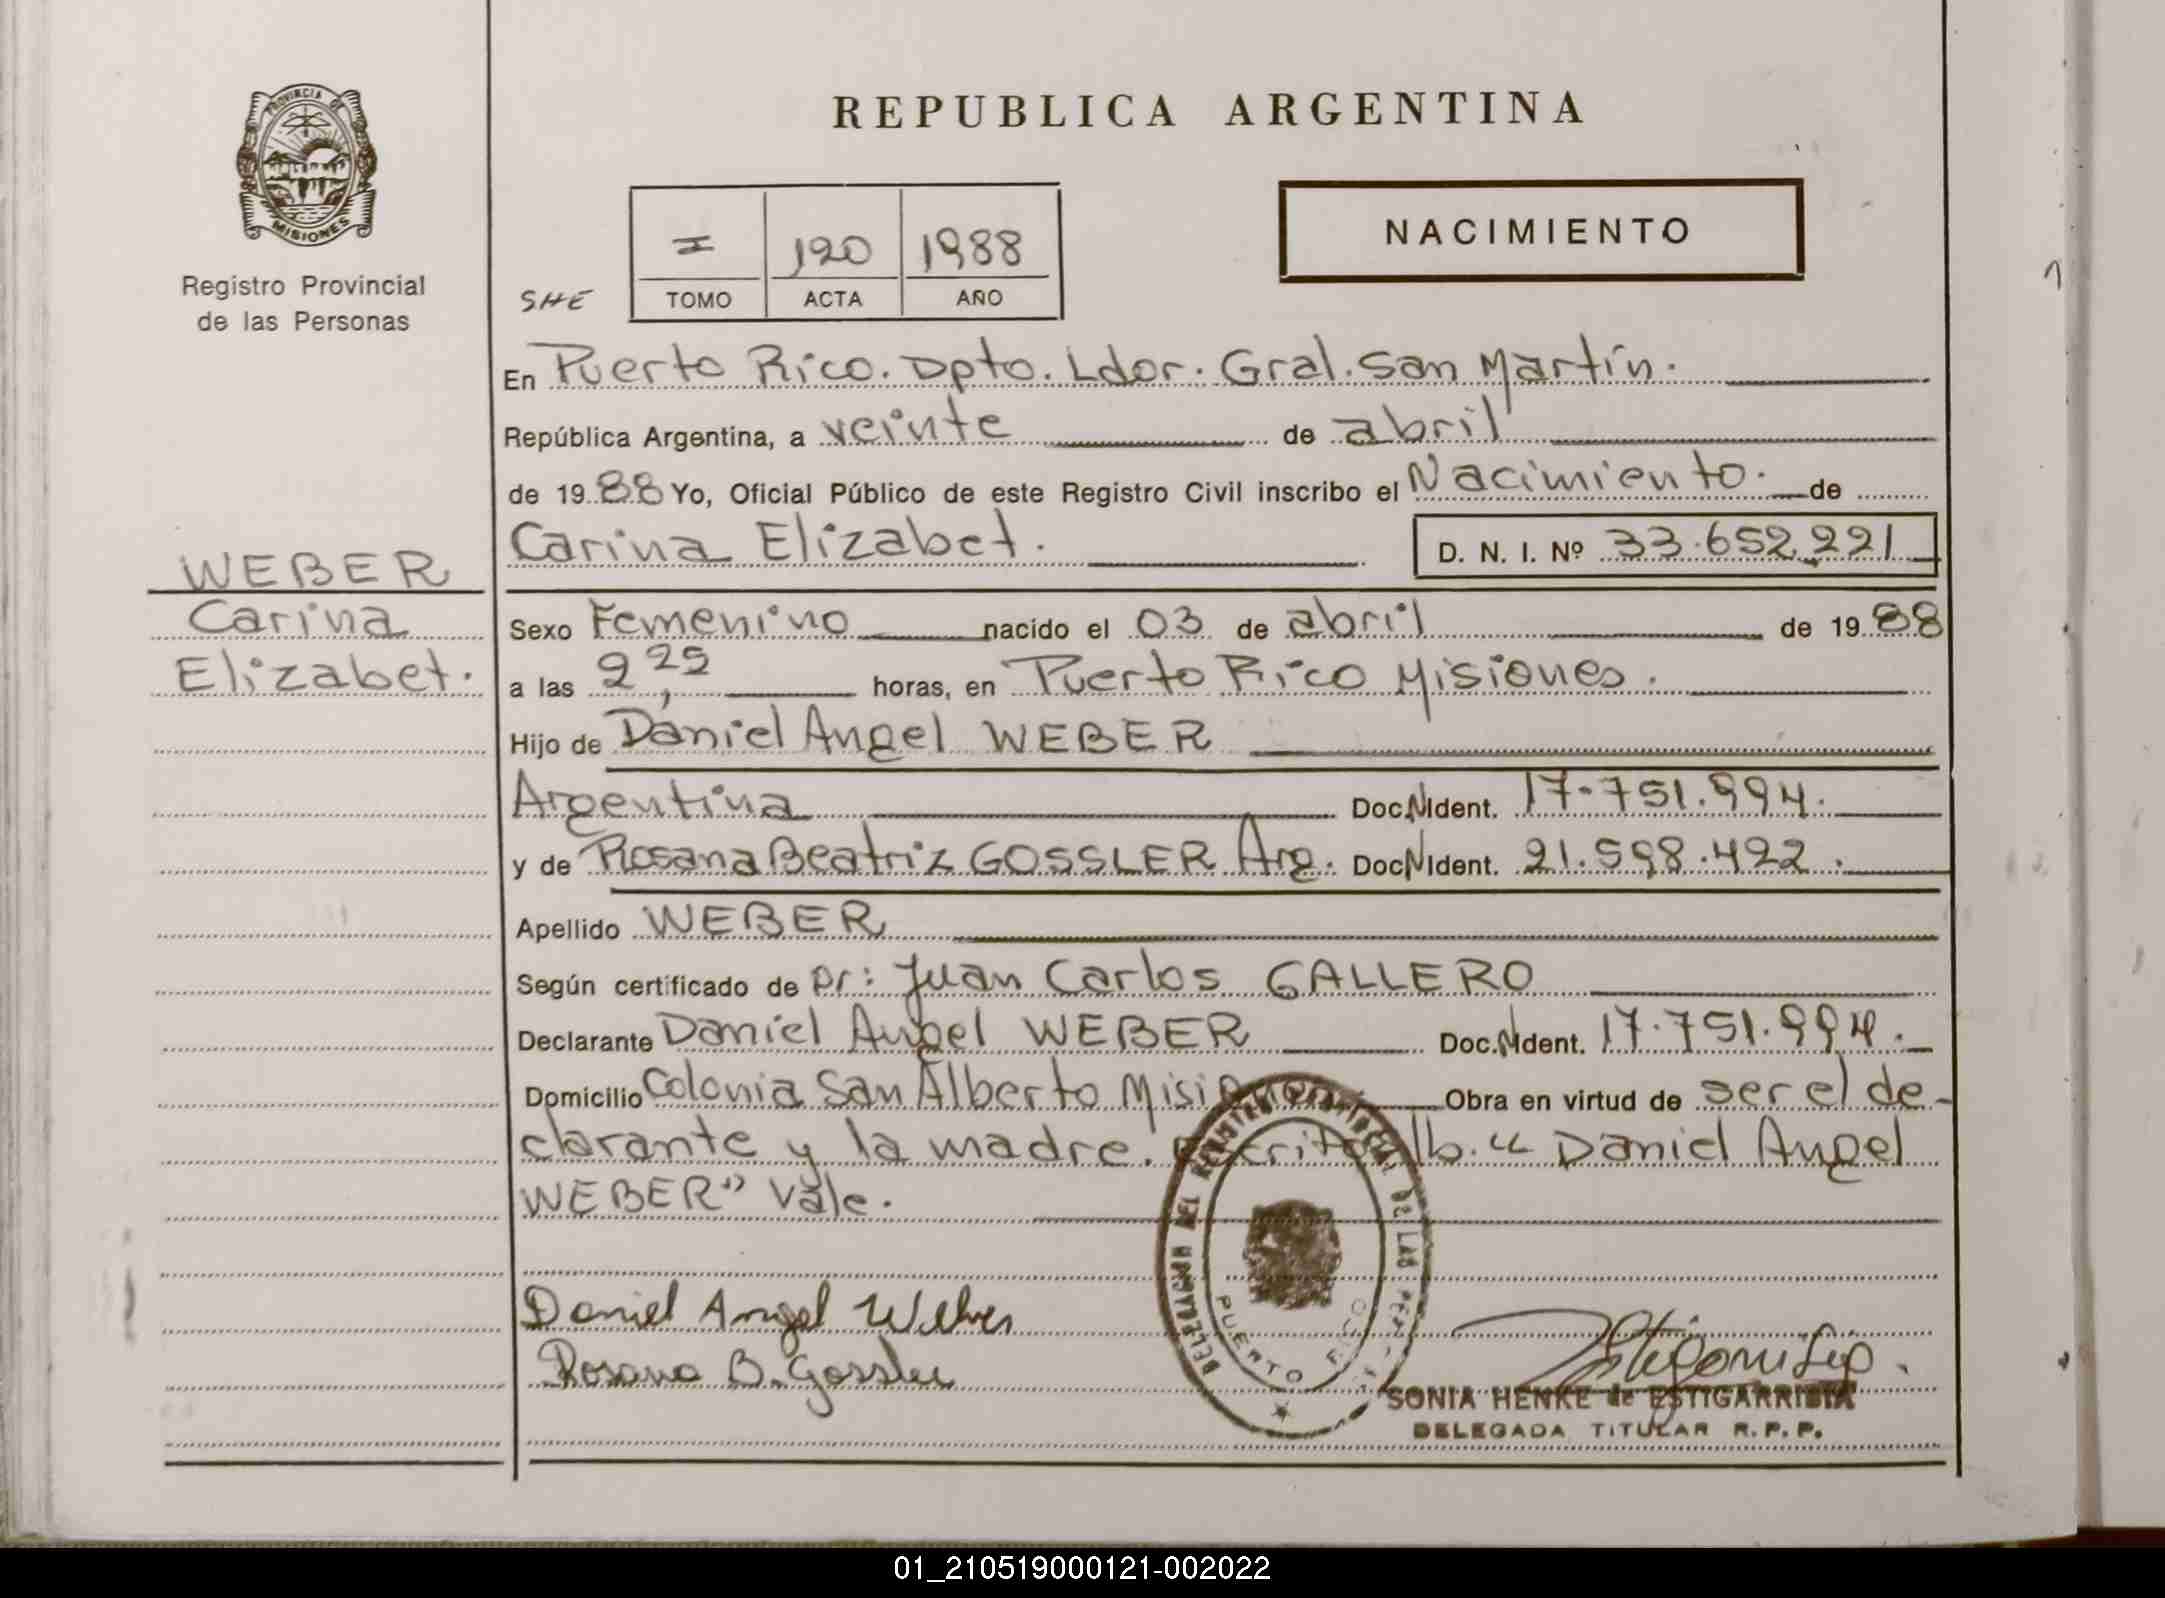 REPUBLICA ARGENTINA
PROVINCIA DE
MISIONES
Registro Provincial
de las Personas
NACIMIENTO
I 120 1988
TOMO ACTA AÑO
SHE
En Puerto Rico. Dpto. Ldor. Gral. San Martín.
República Argentina, a veinte de abril
de 1988 Yo, Oficial Público de este Registro Civil inscribo el Nacimiento. de
Carina Elizabet. D. N. I. Nº 33.652.221
WEBER
Carina
Elizabet.
Sexo Femenino nacido el 03 de abril de 1988
a las 2,25 horas, en Puerto Rico Misiones.
Hijo de Daniel Angel WEBER
Argentina Doc.N.Ident. 17.751.994.
y de Rosana Beatriz GOSSLER Arg. Doc.N.Ident. 21.598.422.
Apellido WEBER
Según certificado de Dr: Juan Carlos GALLERO
Declarante Daniel Angel WEBER Doc.N.Ident. 17.751.994.
Domicilio Colonia San Alberto Misiones Obra en virtud de ser el de-
clarante y la madre. Escrito s/b. "Daniel Angel
WEBER" Vale.
Daniel Angel Weber
Rosana B. Gossler
DELEGACION DEL REGISTRO PROVINCIAL DE LAS PERSONAS
PUERTO RICO
SONIA HENKE de ESTIGARRIBIA
DELEGADA TITULAR R.P.P.
01_210519000121-002022